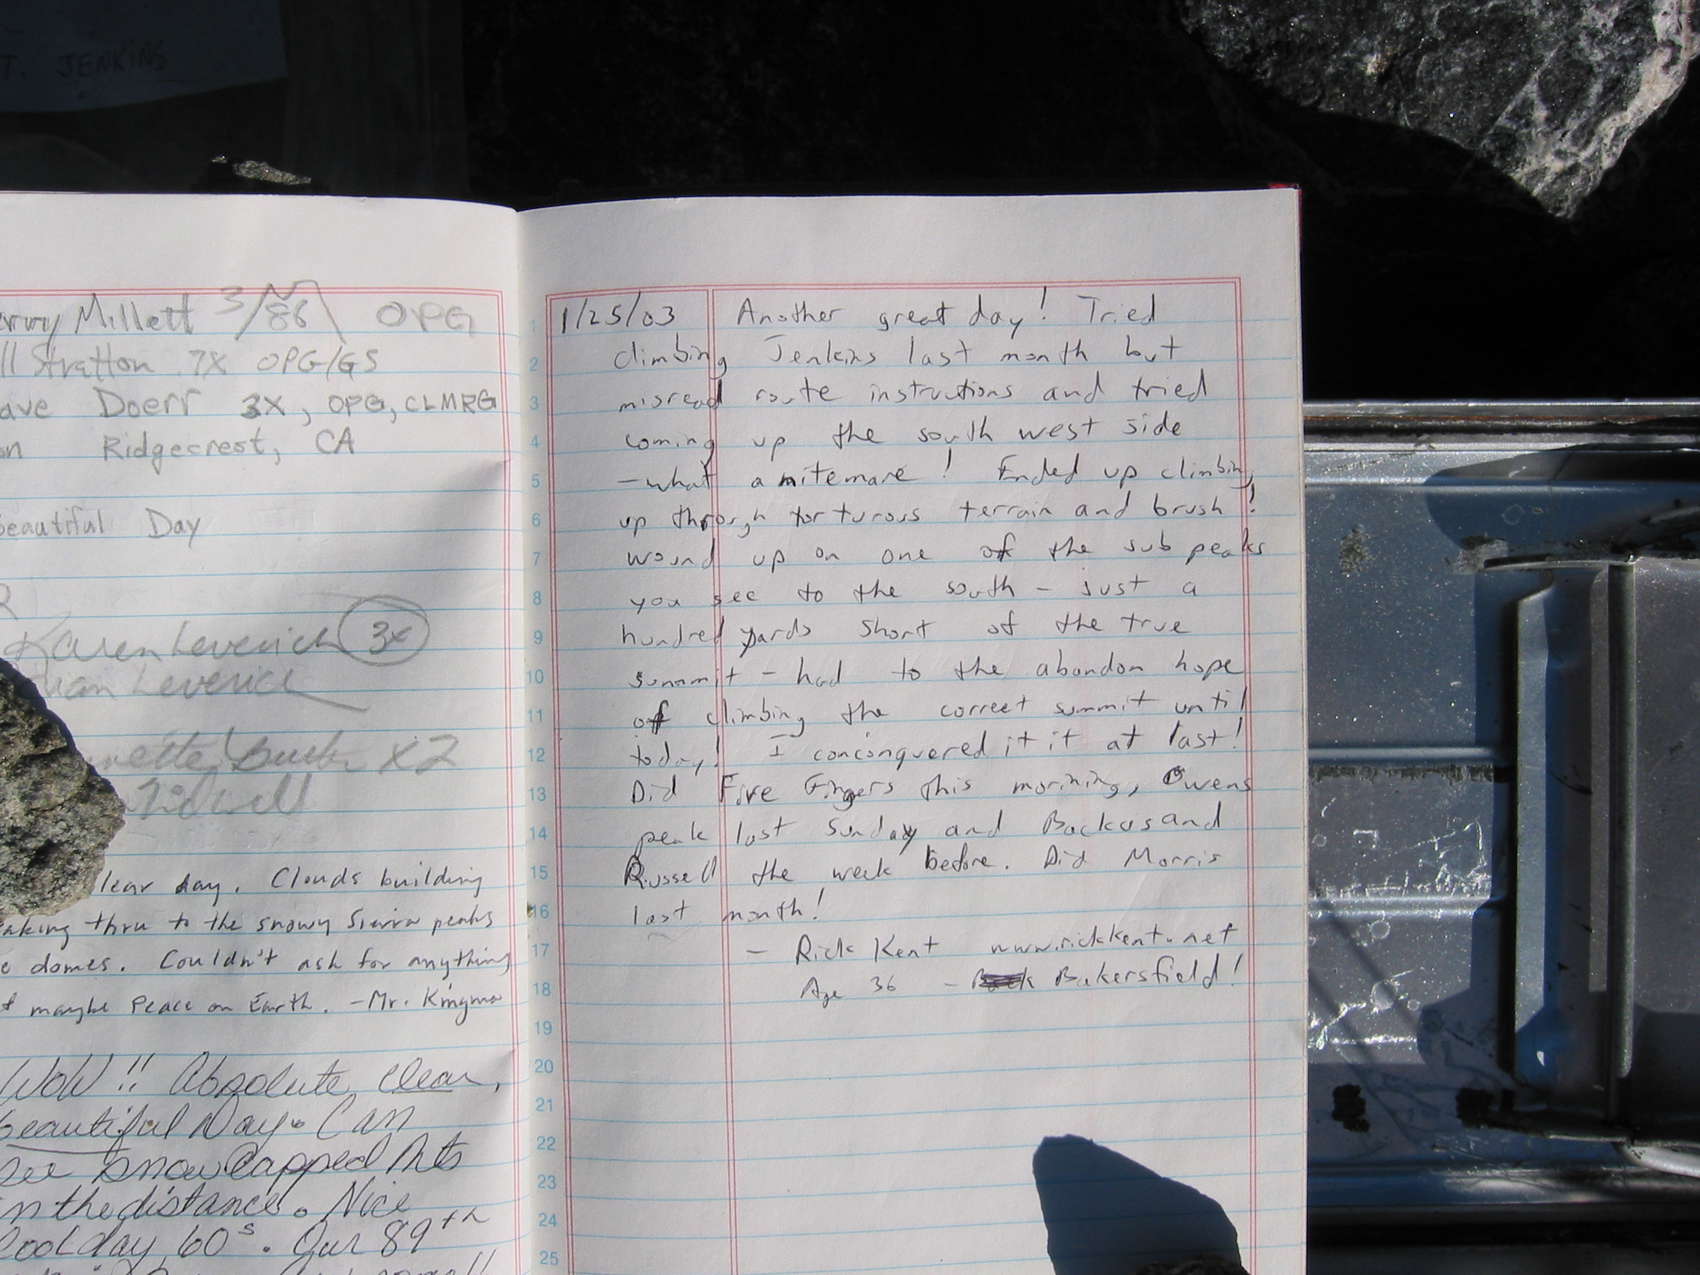 T. JENKINS
Millett 3/86 OPG
Stratton 7X OPG/GS
Doerr 3X, OPG, CLMRG
Ridgecrest, CA
beautiful Day
Karen Leverich 3x
Leverich
X2
lear day. Clouds building
aking thru to the snowy Sierra peaks
domes. Couldn't ask for anything
maybe Peace on Earth. -Mr. Kingma
WOW!! Absolute, clear,
beautiful Day. Can
see snow capped Mts
in the distance. Nice
cool day, 60s. Our 89th
1/25/03 Another great day! Tried
climbing Jenkins last month but
misread route instructions and tried
coming up the south west side
- what a nitemare! Ended up climbing
up through torturous terrain and brush!
wound up on one of the sub peaks
you see to the south - just a
hundred yards short of the true
summit - had to the abandon hope
of climbing the correct summit until
today! I conconquered it it at last!
Did Five Fingers this morining, Owens
peak last Sunday and Backus and
Russell the week before. Did Morris
last month!
- Rick Kent www.rickkent.net
Age 36 - Bakersfield!
1
2
3
4
5
6
7
8
9
10
11
12
13
14
15
16
17
18
19
20
21
22
23
24
25